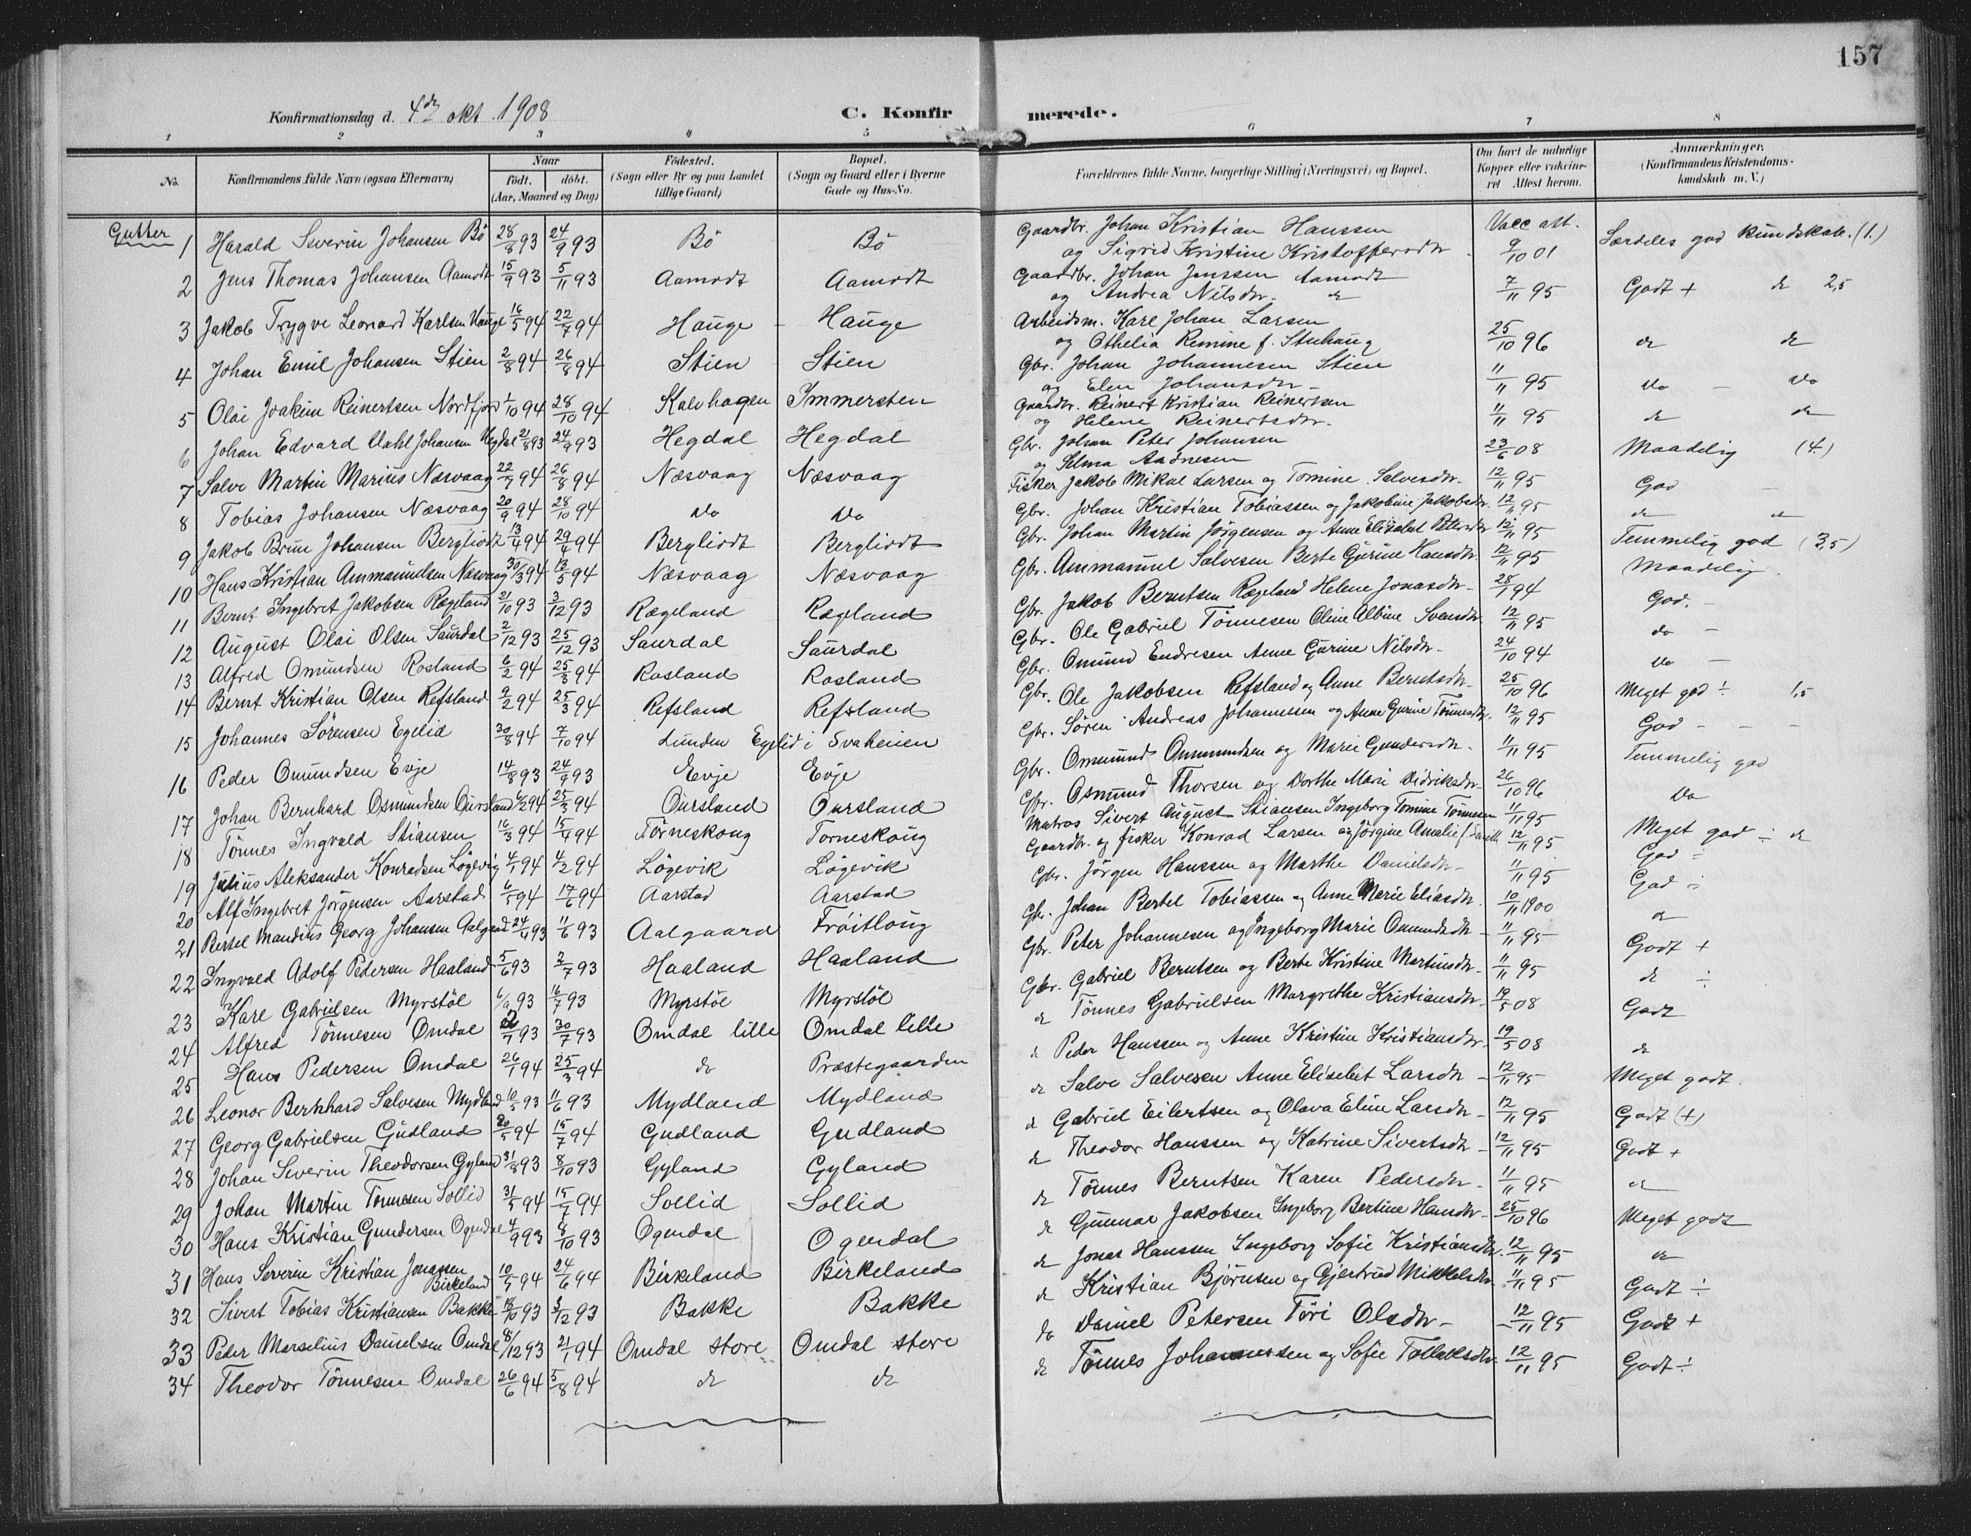 157
Konfirmationsdag d. 4de okt. 1908
C. Konfirmerede.
1 2 3 4 5 6 7 8
No. Konfirmandens fulde Navn (ogsaa Efternavn) Naar født. døbt. (Aar, Maaned og Dag) Fødested. (Sogn eller By og paa Landet tillige Gaard) Bopæl. (Sogn og Gaard eller i Byerne Gade og Hus-No. Forældrenes fulde Navne, borgerlige Stilling (Næringsvei) og Bopæl. Om havt de naturlige Kopper eller vaccineret Attest herom. Anmærkninger. (Konfirmandens Kristendomskundskab m. V.)
Gutter
1 Harald Severin Johansen Bö 28/8 93 24/9 93 Bö Bö Gaardbr. Johan Kristian Hanssen og Sigrid Kristine Kristoffersdtr. Vacc att. 9/10 01 Særdeles god kundskab. (1.)
2 Jens Thomas Johansen Aamodt 15/9 93 5/11 93 Aamodt Aamodt Gaardbr. Johan Jenssen Aamodt og Andrea Nilsdtr. do 7/11 95 Godt + do 2,5
3 Jakob Trygve Leonard Karlsen Hauge 16/5 94 22/7 94 Hauge - Hauge Arbeidsm. Karl Johan Larsen og Othelia Remine f. Stuhaug 25/10 96 do do
4 Johan Emil Johansen Stien 2/8 94 26/8 94 Stien Stien Gbr. Johan Johannesen Stien og Elen Johansdtr - 11/11 95 Do - Do
5 Olai Joakim Reinertsen Nordfjord 1/10 94 28/10 94 Kalvhagen Immersten Gaardbr. Reinert Kristian Reinertsen og Helene Reinertsdtr. 11/11 95 do do
6 Johan Edvard Dahl Johansen Hegdal 21/8 93 24/9 93 Hegdal Hegdal Gbr. Johan Peter Johansen og Selma Aadnesen 23/6 08 Maadelig (4)
7 Salve Martin Marius Næsvaag 22/7 94 26/8 94 Næsvaag Næsvaag Fisker Jakob Mikal Larsen og Tomine Salvesdtr. 12/11 95 God -
8 Tobias Johansen Næsvaag 20/9 94 28/10 94 Do Do Gbr. Johan Kristian Tobiassen og Jakobine Jakobsdtr 12/11 95 do do
9 Jakob Brun Johansen Bergliodt 13/4 94 29/4 94 Bergliodt Bergliodt Gbr. Johan Martin Jørgensen og Anne Elisabet Petersdtr 12/11 95 Temmelig god (3,5)
10 Hans Kristian Ammanuelsen Næsvaag 30/3 94 13/5 94 Næsvaag Næsvaag Gbr. Ammanuel Salvesen Berte Gurine Hansdtr. 12/11 95 Maadelig
11 Bernt Ingebret Jakobsen Rægeland 21/10 93 3/12 93 Rægeland Rægeland Gbr. Jakob Berntsen Rægeland Helene Jonasdtr - 28/1 94 God. -
12 August Olai Olsen Saurdal 2/12 93 25/12 93 Saurdal Saurdal Gbr. Ole Gabriel Tönnesen Oline Albine Svensdtr 12/11 95 do -
13 Alfred Omundsen Rosland 6/2 94 25/3 94 Rosland Rosland Gbr. Omund Endresen Anne Gurine Nilsdtr - 24/10 94 Do -
14 Bernt Kristian Olsen Refsland 9/2 94 25/3 94 Refsland Refsland Gbr. Ole Jakobsen Refsland og Anne Berntsdtr - 25/10 96 Meget god ÷ 1,5
15 Johannes Sørensen Egelid 30/8 94 7/10 94 Lunden Egelid i Svaheien Gbr. Sören Andreas Johannessen og Anne Gurine Tönnesdtr. 12/11 95 God - - -
16 Peder Omundsen Evje 14/8 93 24/9 93 Evje Evje Gbr. Omund Ommundsen og Marie Gundersdtr - 11/11 95 Temmelig god
17 Johan Bernhard Osmundsen Oursland 6/2 94 25/3 94 Oursland Oursland Gbr. Osmund Thorsen og Dorthe Marie Didriksdtr 26/10 96 Do
18 Tönnes Ingvald Stiansen 16/3 94 15/4 94 Törneskoug Torneskoug Matros Sivert August Stiansen Ingeborg Tomine Tönnesen 11/11 95 Meget god ÷ do
19 Julius Aleksander Konradsen Lögevig 4/1 94 4/2 94 Lögevik Lögevik Gaardbr. og fisker Konrad Larsen og Jörgine Amalie 12/11 95 God ÷
20 Alf Ingebret Jörgensen Aarstad 6/5 94 17/6 94 Aarstad Aarstad Gbr. Jörgen Hanssen og Marthe Danielsdtr - 11/11 95 God ÷
21 Bertel Mandius Georg Johansen Aalgaard 24/4 93 11/6 93 Aalgaard Fröitloug Gbr. Johan Bertel Tobiassen og Anne Marie Eliasdtr. 10/11 1900 do
22 Ingvald Adolf Pedersen Haaland 5/6 93 2/7 93 Haaland Haaland Gbr. Peter Johannesen og Ingeborg Marie Omundsdtr - 11/11 95 Godt +
23 Karl Gabrielsen Myrstöl 93 16/7 93 Myrstöl Myrstöl Gbr. Gabriel Berntsen og Berte Kristine Martinsdtr. 11/11 95 do ÷
24 Alfred Tönnesen Omdal 93 30/7 93 Omdal lille Omdal lille do Tönnes Gabrielsen Margrethe Kristiansdtr - 19/5 08 Godt
25 Hans Pedersen Omdal 26/1 94 25/3 94 do Præstegaarden do Peder Hanssen og Anne Kristine Kristiansdtr. 19/5 08 do
26 Leonor Bernhard Salvesen Mydland 10/5 93 11/6 93 Mydland Mydland do Salve Salvesen Anne Elisebet Larsdtr - 12/11 95 Meget godt.
27 Georg Gabrielsen Gudland 20/5 94 15/7 94 Gudland Gudland do Gabriel Eilertsen og Olava Eline Larsdtr - 12/11 95 Godt (+)
28 Johan Severin Theodorsen Gyland 31/8 93 8/10 93 Gyland Gyland do Theodor Hanssen og Katrine Sivertsdtr - 12/11 95 Godt +
29 Johan Martin Tönnesen Sollid 31/5 94 15/7 94 Sollid Sollid do Tönnes Berntsen Karen Pedersdtr - 11/11 95 do
30 Hans Kristian Gundersen Ogendal 4/9 93 8/10 93 Ogendal Ogendal do Gunnar Jakobsen Ingeborg Bertine Hansdtr - 25/10 96 Meget godt
31 Hans Severin Kristian Jonassen Birkeland 10/5 94 24/6 94 Birkeland Birkeland do Jonas Hanssen Ingeborg Sofie Kristiansdtr. 12/11 95 do
32 Sivert Tobias Kristiansen Bakke 10/10 93 3/12 93 Bakke Bakke do Kristian Björnsen og Gjertrud Mikkelsdtr 11/11 95 Godt ÷
33 Peder Marselius Danielsen Omdal 8/12 93 21/1 94 Omdal store Omdal store do Daniel Petersen Töri Olsdtr - 12/11 95 Godt +
34 Theodor Tönnesen Omdal 26/6 94 5/8 94 do do do Tönnes Johannessen og Sofie Tollaksdtr 12/11 95 Godt ÷